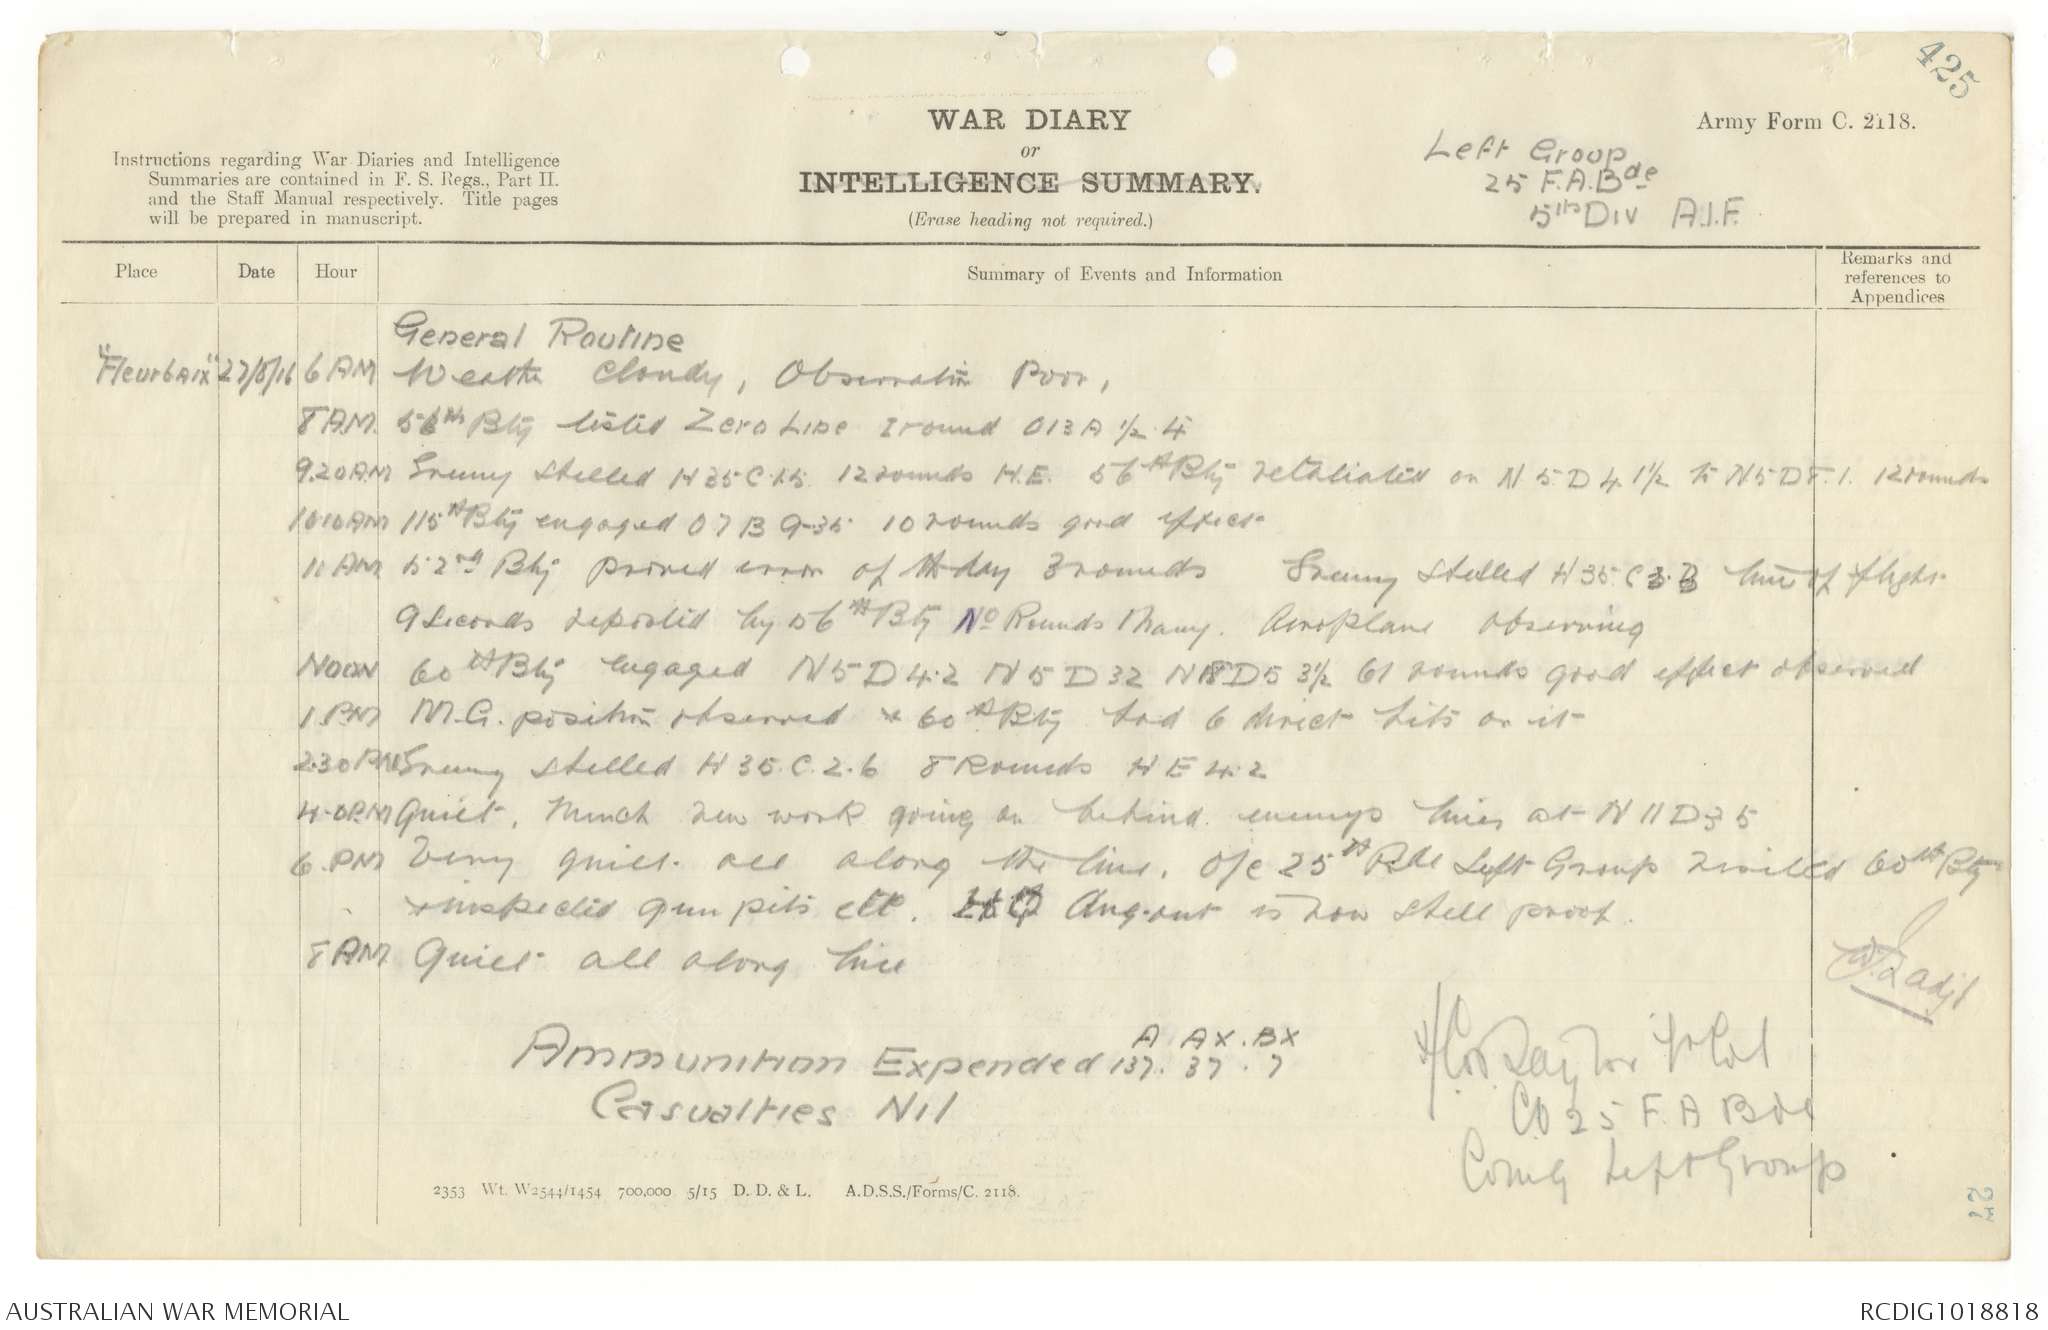 425
WAR DIARY
or
INTELLIGENCE SUMMARY.
(Erase heading not required.)
Army Form C. 2118.
Instructions regarding War Diaries and Intelligence
Summaries are contained in F. S. Regs., Part II.
and the Staff Manual respectively. Title pages
will be prepared in manuscript.
Left Group
25 F.A. Bde
5th Div A.I.F.
Place Date Hour Summary of Events and Information Remarks and references to Appendices
General Routine
"Fleurbaix" 27/8/16 6 AM Weather Cloudy, Observation Poor,
8 A.M. 56th Bty tested Zero Line 1 round O13 A ½ .4
9.20 A.M Enemy shelled H 35 C.1.5. 12 rounds H.E. 56th Bty retaliated on N 5. D 4. 1½ to N 5 D 8. 1. 12 rounds
10.10 AM 115th Bty engaged O 7 B 9.35 10 rounds good effect
11 AM 52nd Bty proved error of the day 3 rounds Enemy shelled H 35. C line of flight
9 seconds reported by 56th Bty No Rounds Many. Aeroplane observing
NOON 60th Bty engaged N 5 D 4.2 N 5 D 32 N18D5 3½ 61 rounds good effect observed
1 PM M.G. position observed & 60th Bty had 6 direct hits on it
2.30 PM Enemy shelled H 35. C. 2.6 8 Rounds H E 4.2
4.0 P.M Quiet. Much new work going on behind enemys lines at N 11 D 35
6. PM Very quiet all along the line. O/c 25th Bde Left Group visited 60th Bty
& inspected gun pits etc. Dug-out is now shell proof.
8 AM Quiet all along line
Adjt
Ammunition Expended A 137. AX. 37. BX 7
Casualties Nil
Taylor Lt Col
CO 25 F.A Bde
Comg Left Group
2353 Wt. W2544/1454 700,000 5/15 D. D. & L. A.D.S.S./Forms/C. 2118.
AUSTRALIAN WAR MEMORIAL
RCDIG1018818